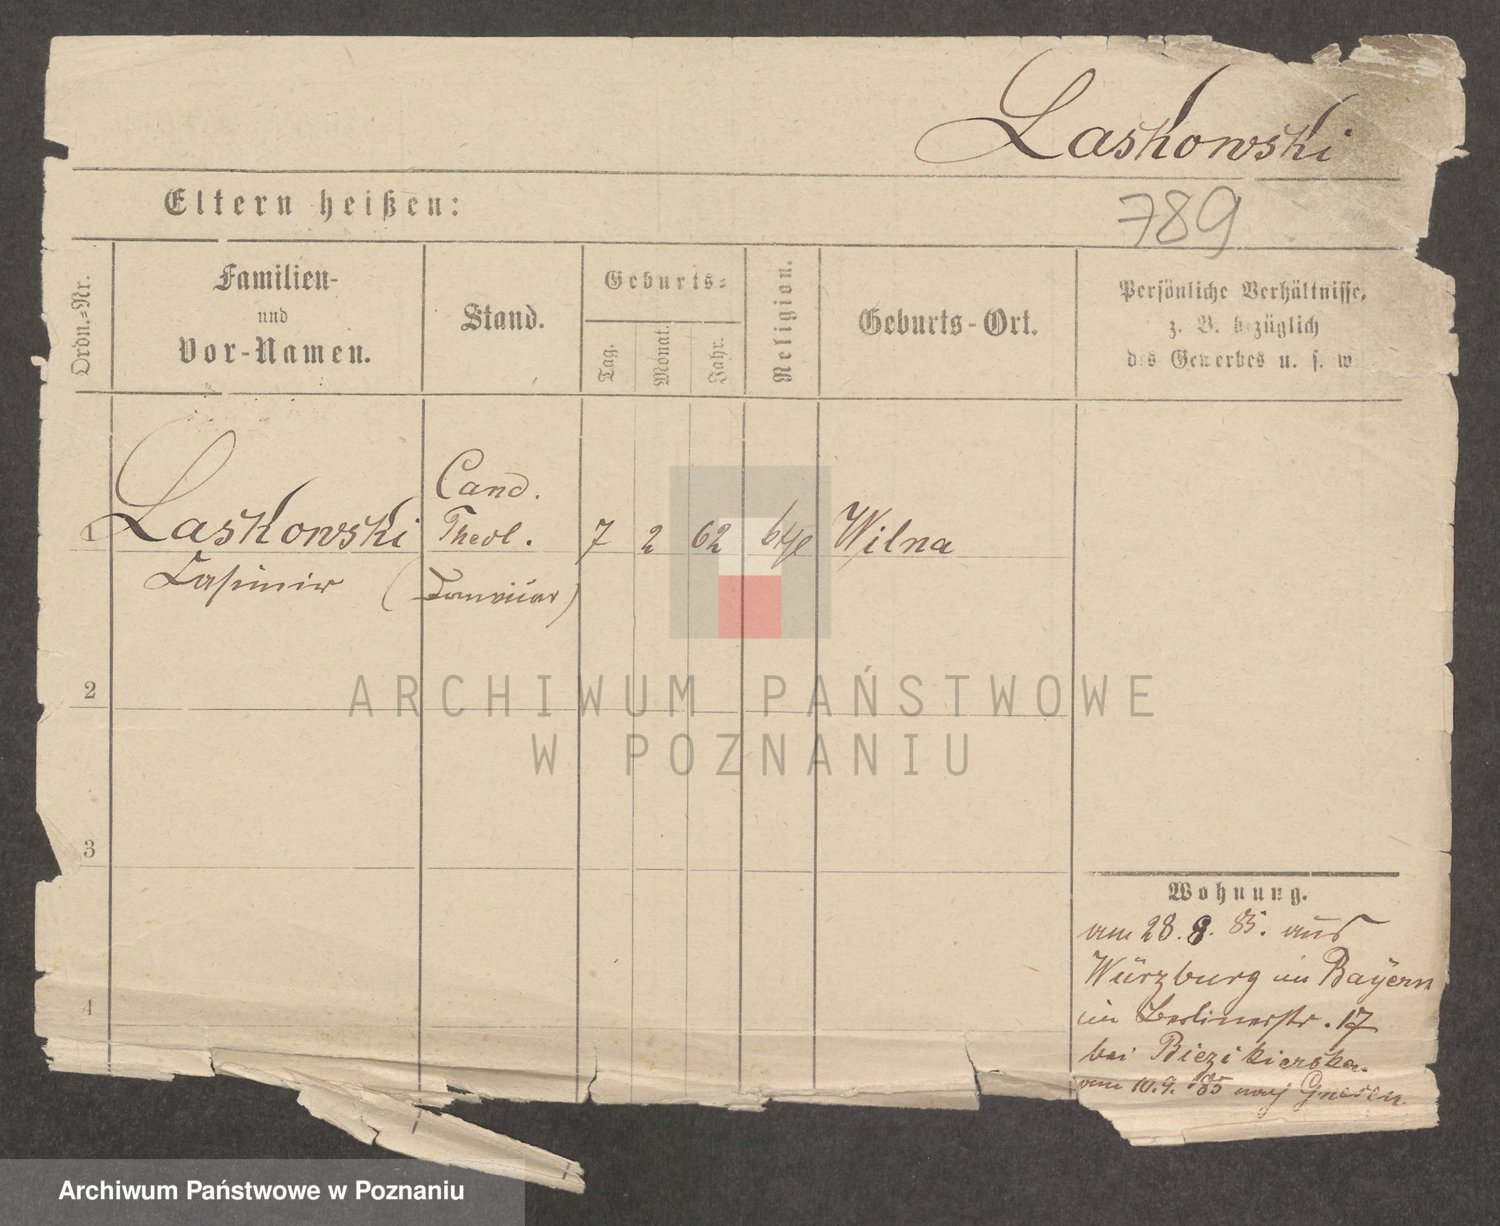 Laskowski
789
Eltern heißen:
Ordn.=Nr.
Familien-
und
Vor-Namen.
Stand.
Geburts=
Tag.
Monat.
Jahr.
Religion.
Geburts-Ort.
Persönliche Verhältnisse,
z. B. bezüglich
des Gewerbes u. s. w.
Cand.
1 Laskowski Theol. 7 2 62 kth Wilna
Casimir
2
ARCHIWUM PAŃSTWOWE
W POZNANIU
3
Wohnung.
am 28. 8. 85. aus
Würzburg in Bayern
in Berlinerstr. 17
bei
4
am 10.9. 85 nach Gnesen
Archiwum Państwowe w Poznaniu